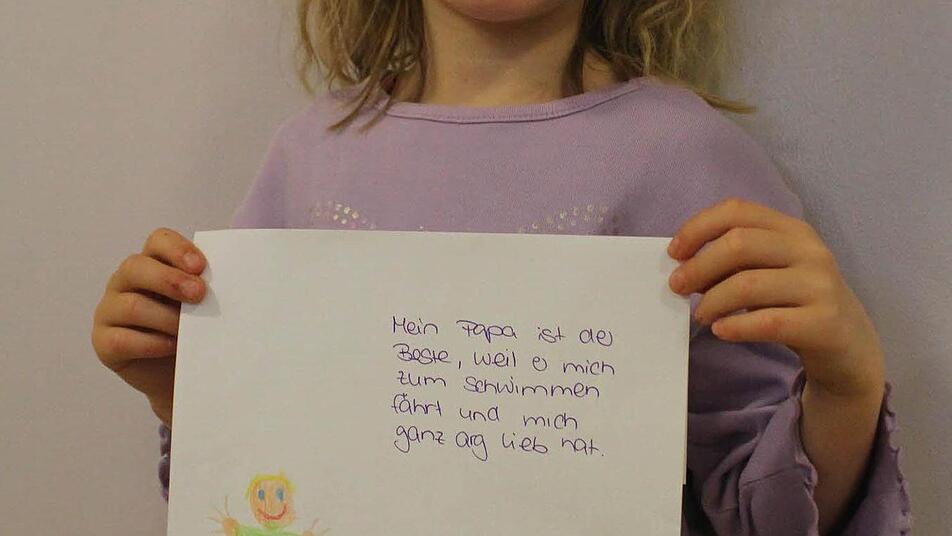 Mein Papa ist der
Beste, weil er mich
zum Schwimmen
fährt und mich
ganz arg lieb hat.